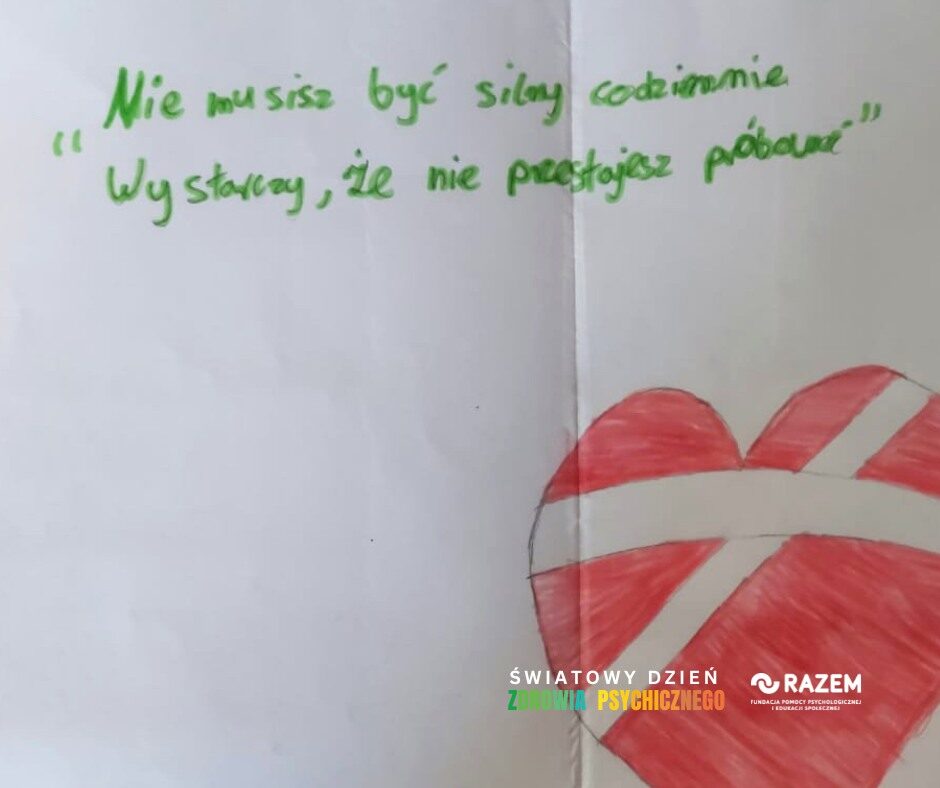 „Nie musisz być silny codziennie
Wystarczy, że nie przestajesz próbować”
ŚWIATOWY DZIEŃ
ZDROWIA PSYCHICZNEGO
RAZEM
FUNDACJA POMOCY PSYCHOLOGICZNEJ
I EDUKACJI SPOŁECZNEJ